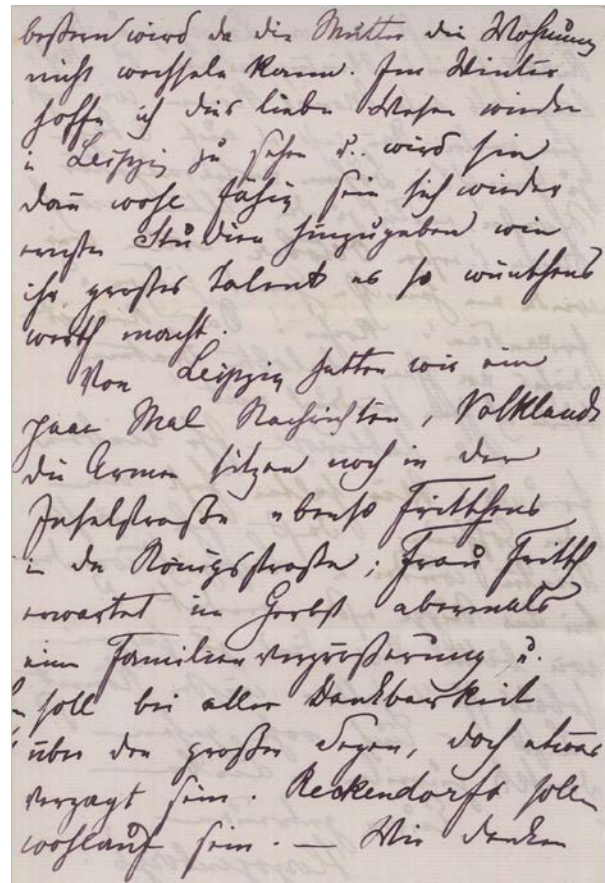 beßern wird da die Mutter die Wohnung
nicht wechseln kann. Im Winter
hoffe ich dies liebe Wesen wieder
in Leipzig zu sehen u. wird sie
dañ wohl fähig sein sich wieder
ernsten Studien hinzugeben wie
ihr großes Talent es so wünschens
werth macht.
Von Leipzig hatten wir ein
paar Mal Nachrichten, Volklands
die Armen sitzen noch in der
Inselstraße ebenso Fritzschens
in der Königsstraße; Frau Fritzsch
erwartet im Herbst abermals
eine Familienvergrößerung u.
soll bei aller Dankbarkeit
über den großen Segen, doch etwas
verzagt sein. Reckendorfs sollen
wohlauf sein. — Wir denken